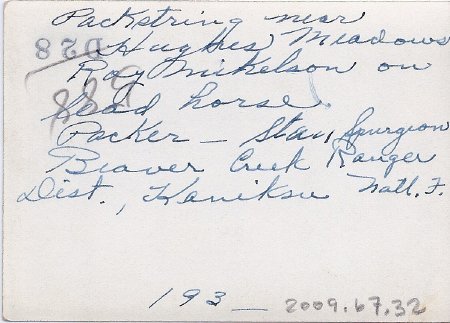 Packstring near
Hughes Meadows
Ray Mickelson on
lead horse.
Packer - Stan Spurgeon
Beaver Creek Ranger
Dist., Kaniksu Natl. F.
193_
2009.67.32
D28